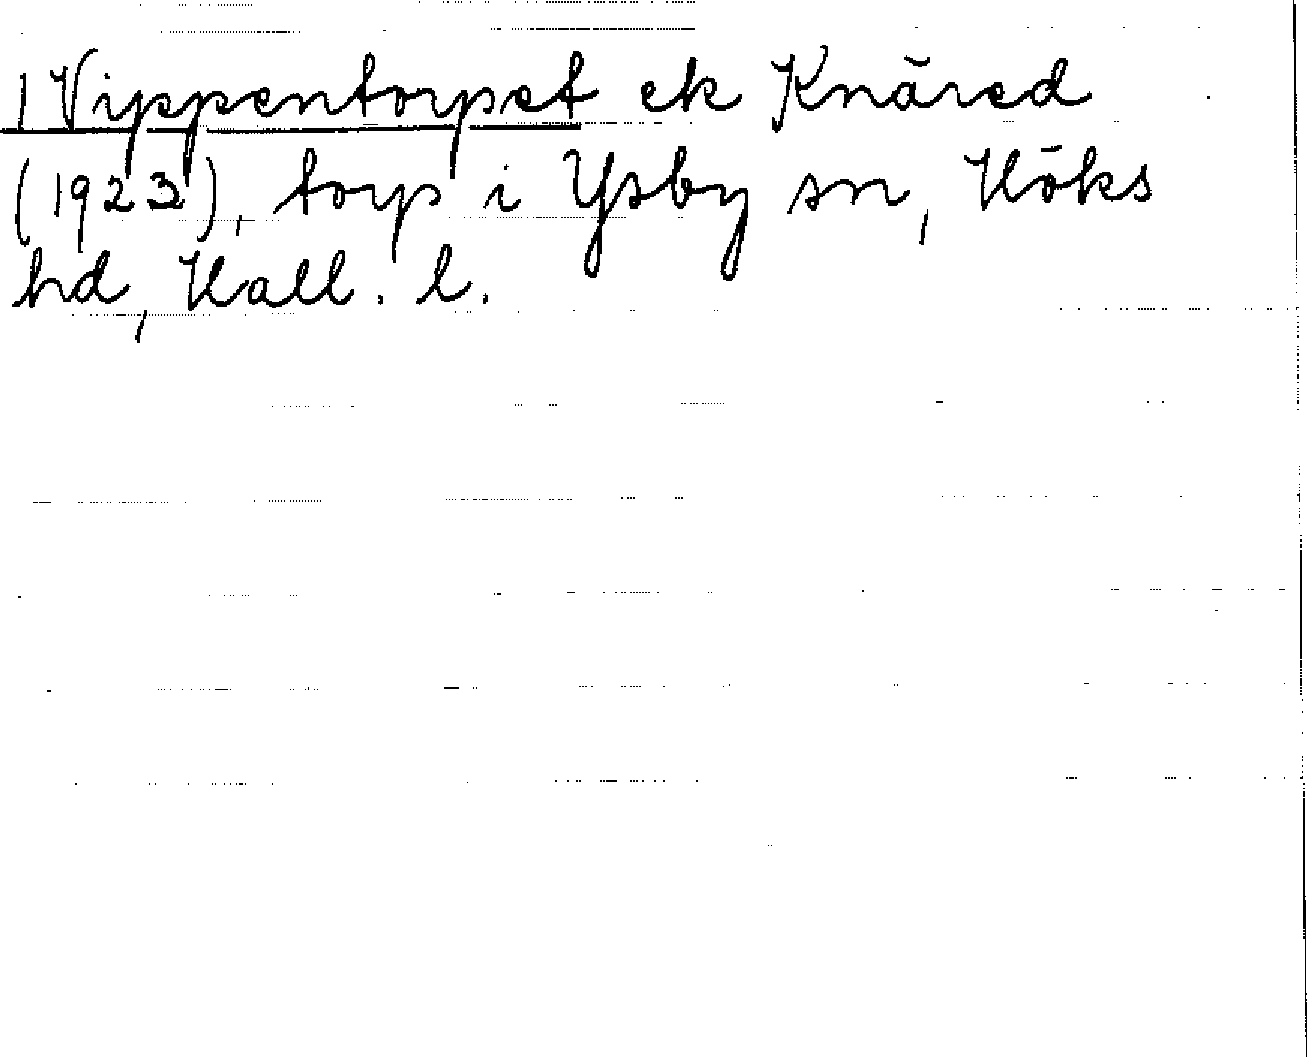 1 Vippentorpet ek Knäred
(1923), torp i Ysby sn, Höks
hd, Hall. l.